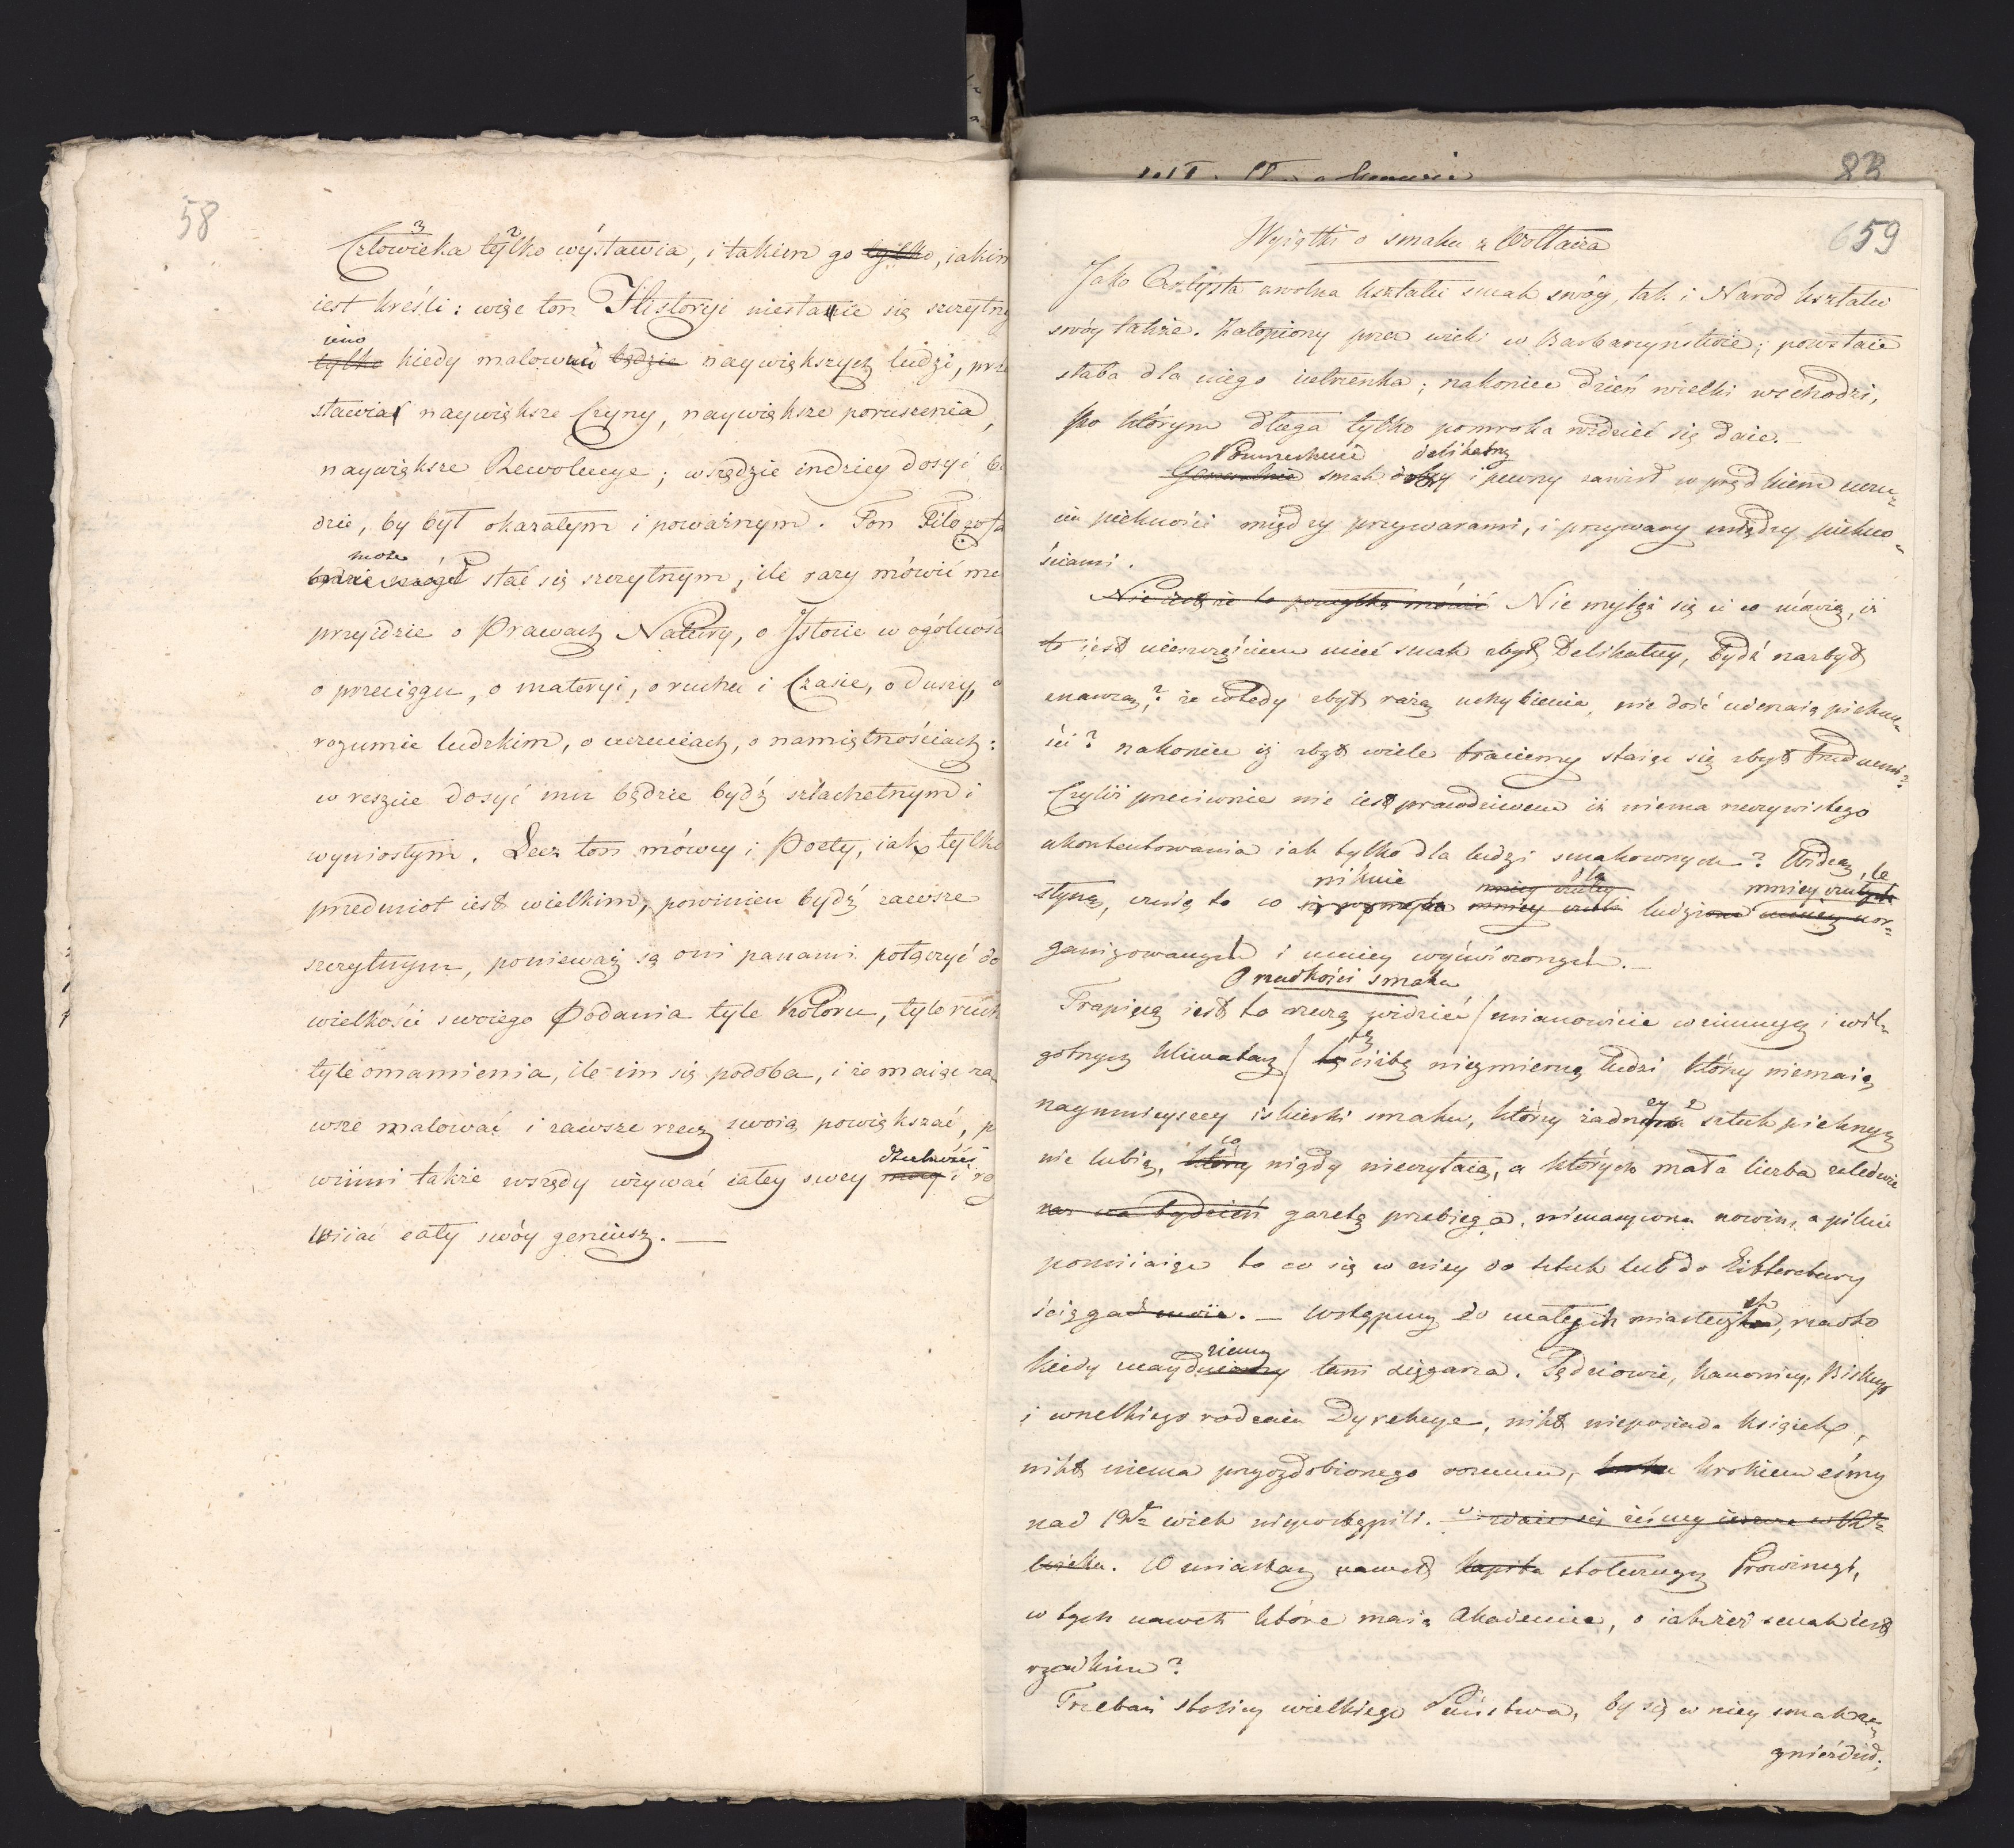 58
Człowieka tylko wystawia, i takim go tylko, iakim
iest kreśli: więc ton Historyi niestanie się szczytny
ieno
tylko kiedy malować będzie naywiększych ludzi, prze
stawiać naywiększe Czyny, naywiększe poruszenia,
naywiększe Rewolucye; wszędzie indziey dosyć bę
dzie, by był okazałym i poważnym. Ton Filozofa
może
będzie mógł stać się szczytnym, ile razy mówić mu
przyidzie o Prawach Natury, o Istocie w ogólnośc
o przeciągu, o materyi, o ruchu i Czasie, o duszy, o
rozumie ludzkim, o uczuciach, o namiętnościach:
w reszcie dosyć mu będzie bydź szlachetnym i
wyniosłym. Lecz ton mówcy i Poety, iak tylko
przedmiot iest wielkim, powinien bydź zawsze
szczytnym, ponieważ są oni panami połączyć do
wielkości swoiego Podania tyle Koloru, tyle ruch
tyle omamienia, ile im się podoba, i że maiąc za
wsze malować i zawsze rzecz swoią powiększać, p
winni także wszędy używać całey swey mocy i ro
dzielności
wiiać cały swóy geniusz. —
83
659
Wyiątki o smaku z Woltaira
Jako Artysta zwolna kształci smak swóy, tak i Naród kształci
swóy także. Zatopiony przez wieki w Barbarzyństwie; powstaie
słaba dla niego iutrzenka; nakoniec dzień wielki wschodzi,
po którym długa tylko pomroka widzieć się daie. —
Powszechnie delikatny
Generalnie smak dobry i pewny zawisł w prędkiem uczu-
ciu piękności między przywarami, i przywary między piękno-
ściami.
Nie iestże to pomyłką mówić Nie mylą się ci co mówią, iż
to iest nieszczęściem mieć smak zbyt Delikatny, bydź nazbyt
znawcą? że wtedy zbyt rażą uchybienia, nie dość uderzaią piękno-
ści? nakoniec iż zbyt wiele traciemy staiąc się zbyt trudnemi?
Czyliż przeciwnie nie iest prawdziwem iż niema rzeczywistego
ukontentowania iak tylko dla ludzi smakownych? Widzą, słe
niknie dla mniey czułych
styną, czuią to co ludzi
ganizowanych i mniey wyćwiczonych. —
O rzadkości smaku
Trapiącą iest to rzeczą widzieć / mianowicie w zimnych i wil-
gotnych klimatach / tę ciżbę niezmierną ludzi którzy niemaią
naymnieyszey iskierki smaku, którzy żadnych sztuk pięknych
nie lubią, co nigdy nieczytaią, a których mała liczba zaledwie
raz na tydzień gazetę przebiega, niemaiącą nowin, a pilnie
pomiiaiąc to co się w niey do sztuk lub do Litteratury
ściąga. — Wstąpmy do małych miasteczek, rzadko
kiedy znaydziemy tam xięgarza. Sędziowie, Kanonicy, Biskup
i wszelkiego rodzaiu Dyrekcye, nikt nieposiada książek,
nikt niema przyozdobionego rozumu, krokiem eśmy
nad 12sty wiek niepostąpili.
wieku. W miastach nawet stołecznych Prowincyi,
w tych nawet które maią Akademie, o iakżeż smak iest
rzadkim?
Trzebaż stolicy wielkiego Państwa, by się w niey smak za-
gnieździł;